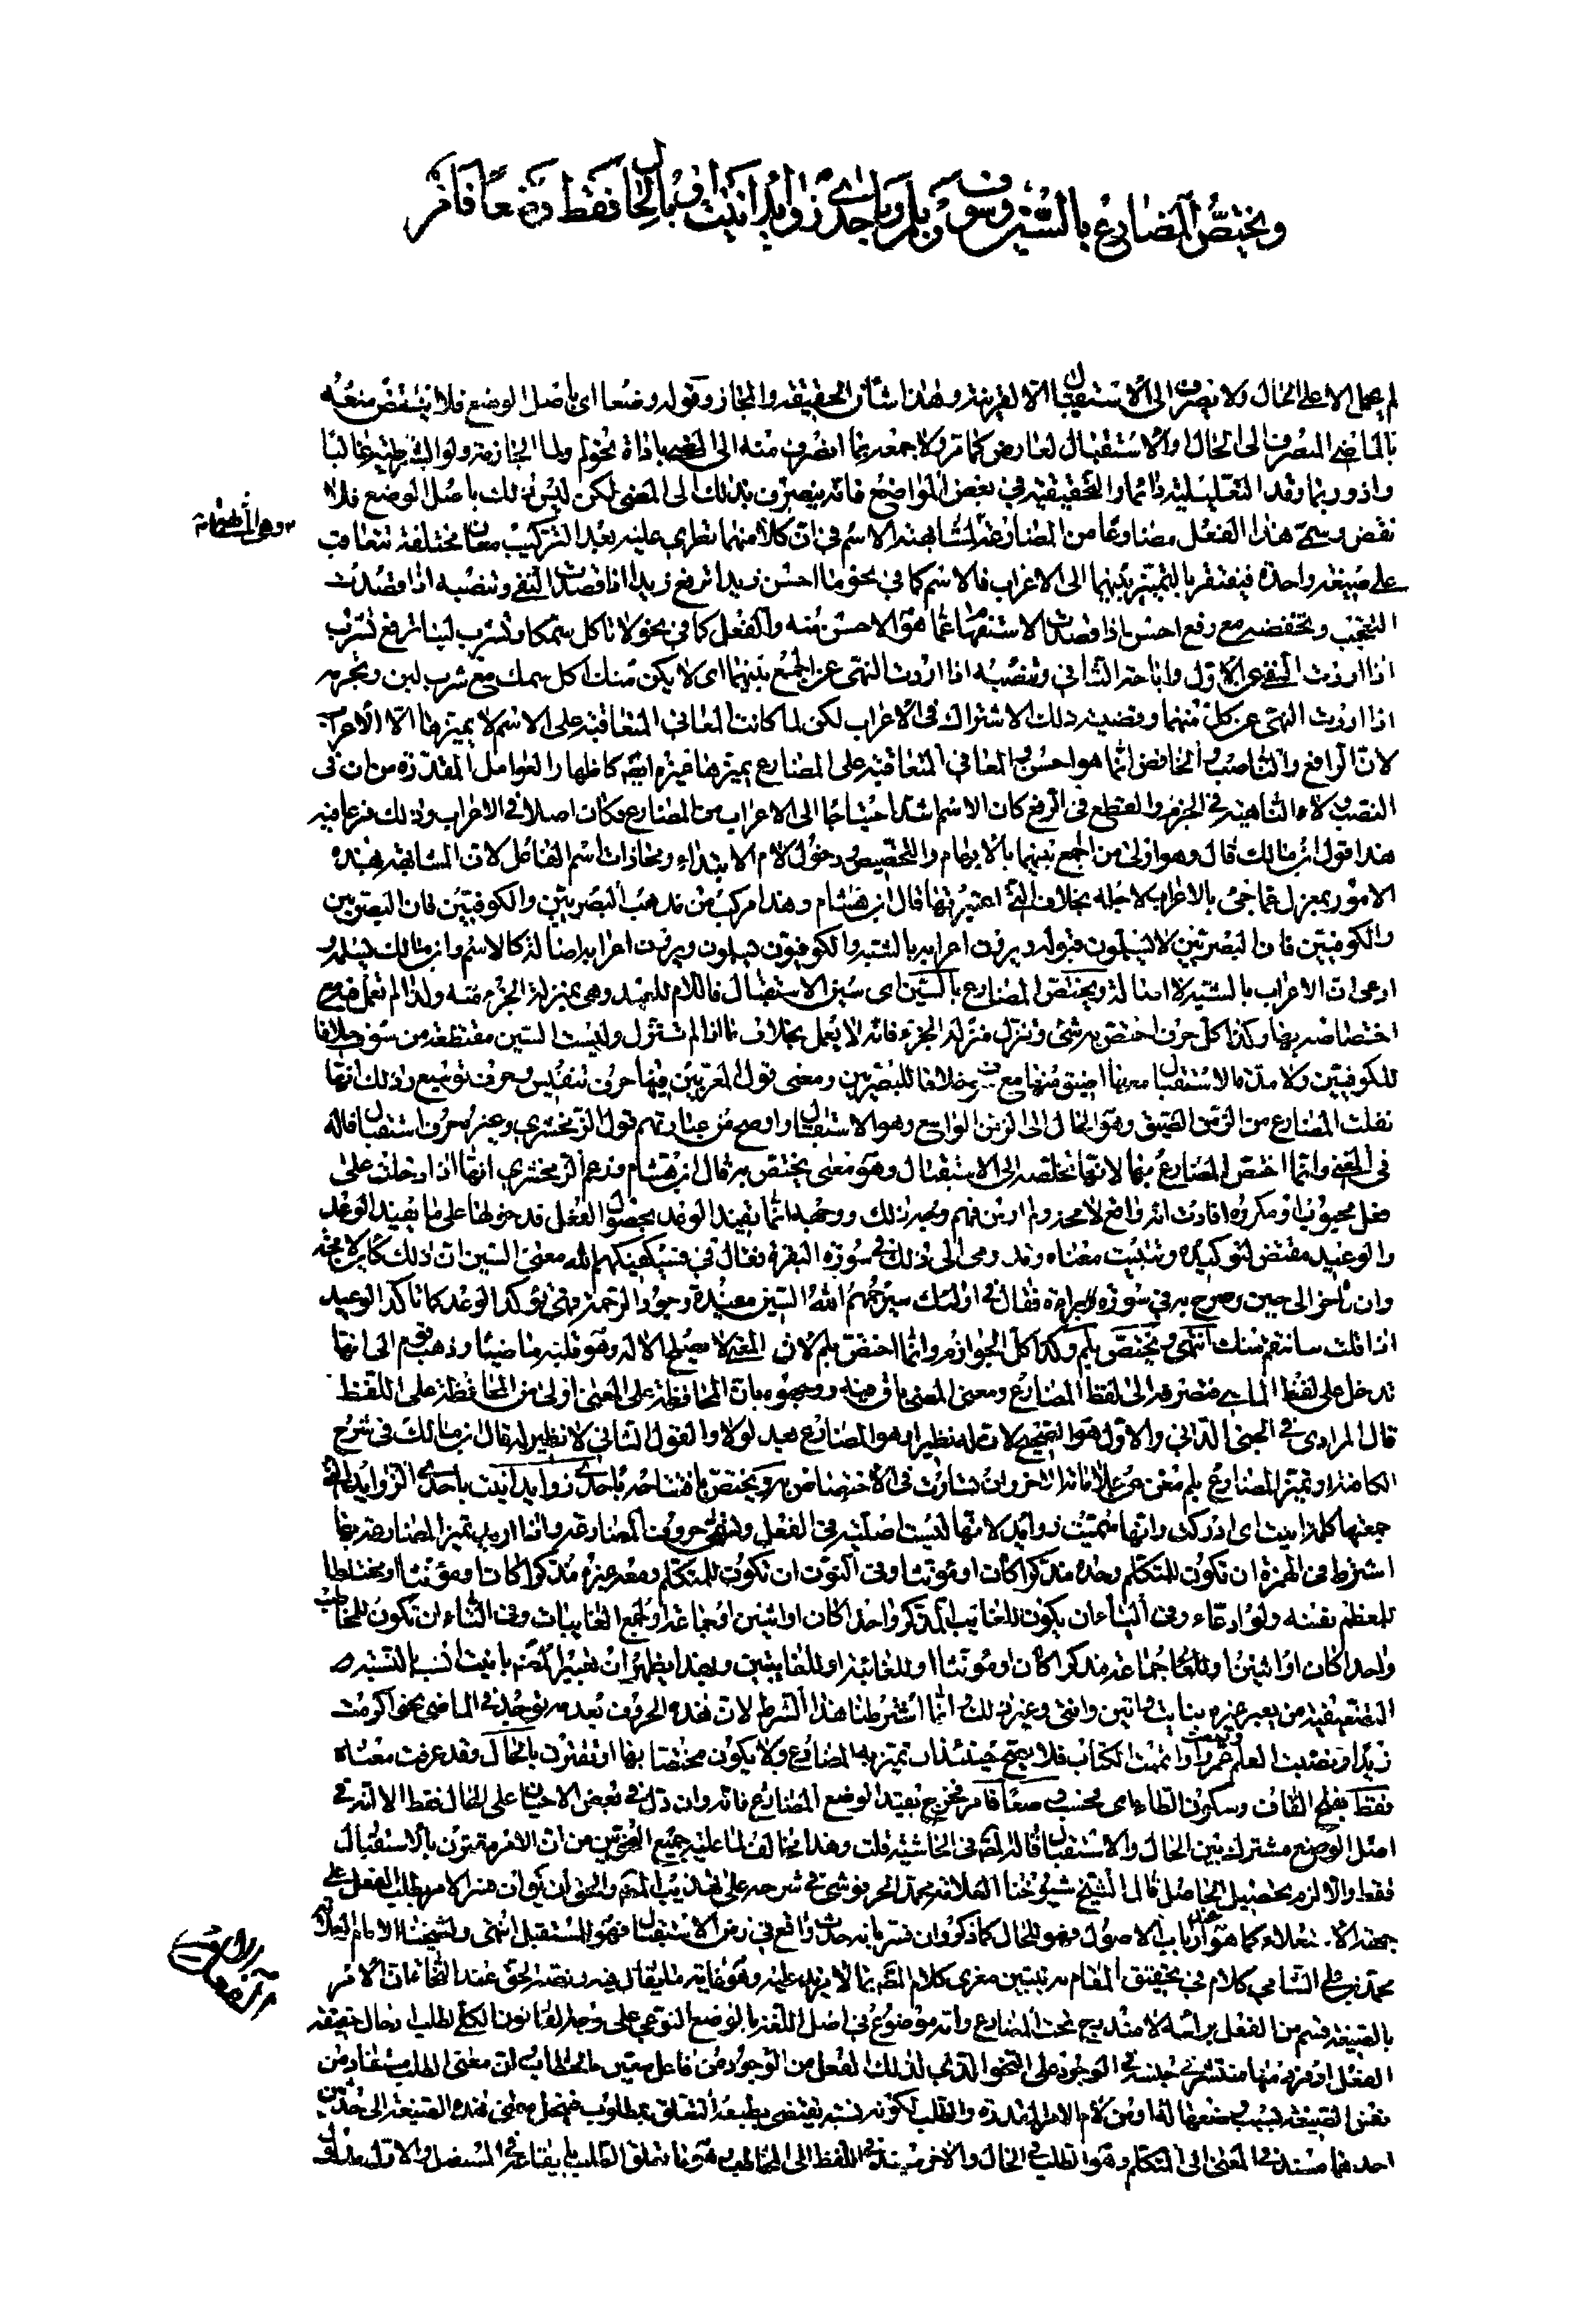 ويختص المضارع بالسين وسوف وبلم وباحدى زوائد انيت او بالحال فقط وضعا فافهم
لم يحمل الا على الحال ولا يصرف الى الاستقبال الا لقرينة وهذا شأن الحقيقة والمجاز وقوله وضعا اى باصل الوضع فلا ينتقض منعه
بالماضى المنصرف الى الحال والاستقبال لعارض كما مر ولا جمعه بما انصرف منه الى المضى باداة نحو لم ولما الجازمة ولو الشرطية غالبا
واذ وربما وقد التقليلية دائما والتحقيقية في بعض المواضع فانه ينصرف بذلك الى المضى لكن ليس ذلك باصل الوضع فلا
نقض وسمى هذا الفعل مضارعا من المضارعة لمشابهته الاسم في ان كلا منهما تطرى عليه بعد التركيب معان مختلفة تتعاقب
على صيغة واحدة فيفتقر بالتمييز بينهما الى الاعراب فالاسم كما في نحو ما احسن زيدا ترفع زيدا اذا قصدت النفى وتنصبه اذا قصدت
التعجب وتخفضه مع رفع احسن اذا قصدت الاستفهام عما هو الاحسن منه والفعل كما في نحو لا تاكل سمكا وتشرب لبنا ترفع تشرب
اذا اردت النهى عن الاول واباحة الثاني وتنصبه اذا اردت النهى عن الجمع بينهما اى لا يكن منك اكل سمك مع شرب لبن وتجزمه
اذا اردت النهى عن كل منهما وقضية ذلك الاشتراك في الاعراب لكن لما كانت المعاني المتعاقبة على الاسم لا يميزها الا الاعراب
لان الرافع والناصب والخافض انما هو احسن والمعاني المتعاقبة على المضارع يميزها غيره ايضا كاظهار العوامل المقدرة من ان في
النصب ولاء الناهية في الجزم والقطع في الرفع كان الاسم اشد احتياجا الى الاعراب من المضارع فكان اصلا في الاعراب وذلك فرعا فيه
هذا قول ابن مالك قال وهو اولى من الجمع بينهما بالابهام والتخصيص ودخول لام الابتداء ومحاذات اسم الفاعل لان المشابهة بهذه
الامور بمعزل عما جئ بالاعراب لاجله بخلاف التى اعتبرتها قال ابن هشام وهذا مركب من مذهب البصريين والكوفيين فان البصريين
والكوفيين فان البصريين لا يسلمون قبوله ويرون اعرابه بالشبه والكوفيون يسلمون ويرون اعرابه اصالة كالاسم وابن مالك يسلم و
ادعى ان الاعراب بالشبه لا اصالة ويختص المضارع بالسين اى سين الاستقبال فاللام للعهد وهى بمنزلة الجزء منه ولذا لم تعمل فيه مع
اختصاصه بها وكذا كل حرف اختص به شئ وتنزل منزلة الجزء فانه لا يعمل بخلاف ما اذا لم يتنزل وليست السين مقتطعة من سوف خلافا
للكوفيين ولا مدة الاستقبال معها اضيق منها مع سوف خلافا للبصريين ومعنى قول المعربين فيها حرف تنفيس وحرف توسيع وذلك انها
نقلت المضارع من الزمن الضيق وهو الحال الى الزمن الواسع وهو الاستقبال واوضح من عبارتهم قول الزمخشري وغيره حرف استقبال قاله
في المغنى وانما اختص المضارع بها لانها تخلصه الى الاستقبال وهو معنى يختص به قال ابن هشام وزعم الزمخشري انها اذا دخلت على
فعل محبوب او مكروه افادت انه واقع لا محة ولم ار من فهم وجه ذلك ووجهه انها تفيد الوعد بحصول الفعل فدخولها على ما يفيد الوعد
والوعيد مقتض لتوكيده وتثبيت معناه وقد اومى الى ذلك في سورة البقرة فقال في فسيكفيكهم الله معنى السين ان ذلك كائن لا محة
وان تاخر الى حين وصرح به في سورة براءة فقال في اولئك سيرحمهم الله السين مفيدة وجود الرحمة فهى تؤكد الوعد كما تاكد الوعيد
اذا قلت سانتقم منك انتهى ويختص بلم وكذا كل الجوازم وانما اختص بلم لان المعنى لا يصلح الا له وهو قلبه ماضيا وذهب قوم الى انها
تدخل على لفظ الماضى فتصرفه الى لفظ المضارع ومعنى المضى باق فيه ووجهوه بان المحافظة على المعنى اولى من المحافظة على اللفظ
قال المرادى في الجنى الداني والاول هو الصحيح لان له نظيرا وهو المضارع بعد لو والقول الثاني لا نظير له قال ابن مالك في شرح
الكافية وتميز المضارع بلم مغن عن العلامات الاخر وان تشارت في الاختصاص به ويختص بافتتاحه باحدى زوائد انيت باحدى الزوايد التى
جمعتها كلمة انيت اى ادركت وانها سميت زوايد لانها ليست اصلية في الفعل وتسمى حروف المضارعة وانما اريد تميز المضارعة بها
اشترط في الهمزة ان تكون للمتكلم وحده مذكرا كان او مؤنثا وفي النون ان تكون للمتكلم ومعه غيره مذكرا كان او مؤنثا او مختلطا
للمعظم نفسه ولو ادعاء وفي الياء ان يكون للغائب المذكر واحدا كان او اثنين او جماعة او لجمع الغائبات وفي التاء ان تكون للمخاطب
واحدا كان او اثنين او جماعة مذكرا كان ومؤنثا او للغائبة او للغائبتين وبهذا يظهر ان تعبير المصنف بانيت انسب بالنسبة
من يعبر غيره بنايت واتين وانتى وغير ذلك وانما اشترطنا هذا الشرط لان هذه الحروف بعده توجد في الماضى نحو اكرمت
زيدا ونصبت العلم وتممت الكتاب فلا يصح حينئذ ان تميز بها المضارع ولا يكون مختصا بها او تقترن بالحال وقد عرفت معناه
فقط بفتح القاف وسكون الطاء اى فحسب وضعا كما مر فخرج بقيد الوضع المضارع فانه وان دل في بعض الاحيان على الحال فقط الا انه في
اصل الوضع مشترك بين الحال والاستقبال قاله المصنف في الحاشية قلت وهذا مخالف لما عليه جميع النحويين من ان الامر مقترن بالاستقبال
فقط والا لزم تحصيل الحاصل قال الشيخ شيوخنا العلامة محمد الحرفوشى في شرحه على تهذيب المصنف والحق ان يق ان فسر الامر بطلب الفعل على
جهة الاستعلاء كما هو عند ارباب الاصول وهو للحال كما ذكر وان فسر بانه حدث واقع في زمن الاستقبال فهو للمستقبل انتهى ولشيخنا الامام العلامة
محمد بن على الشامي كلام في تحقيق المقام وتبيين مغزى كلام المصنف بما لا مزيد عليه وهو غاية ما يقال فيه ونصه الحق عند النحات ان الامر
بالصيغة قسم من الفعل براسه لا مندرج تحت المضارع وانه موضوع في اصل اللغة بالوضع النوعي على وجه القانون الكلى لطلب ادخال حقيقة
الفعل او فرد منها منتشر في جنسه في الوجود على النحو الذي لذلك الفعل من الوجود من فاعل معين بالخطاب لان معنى الطلب مستفاد من
نفس الصيغة بسبب وضعها له او من لام الامر المقدرة والطلب لكونه نسبة يقتضى بطبعه التعلق بمطلوب فينحل معنى هذه الصيغة الى حدثين
احدهما مستند في المعنى الى المتكلم وهو الطلب في الحال والاخر مستند في اللفظ الى المخاطب وهو ما يتعلق الطلب بايقاعه في المستقبل والاول مدلول